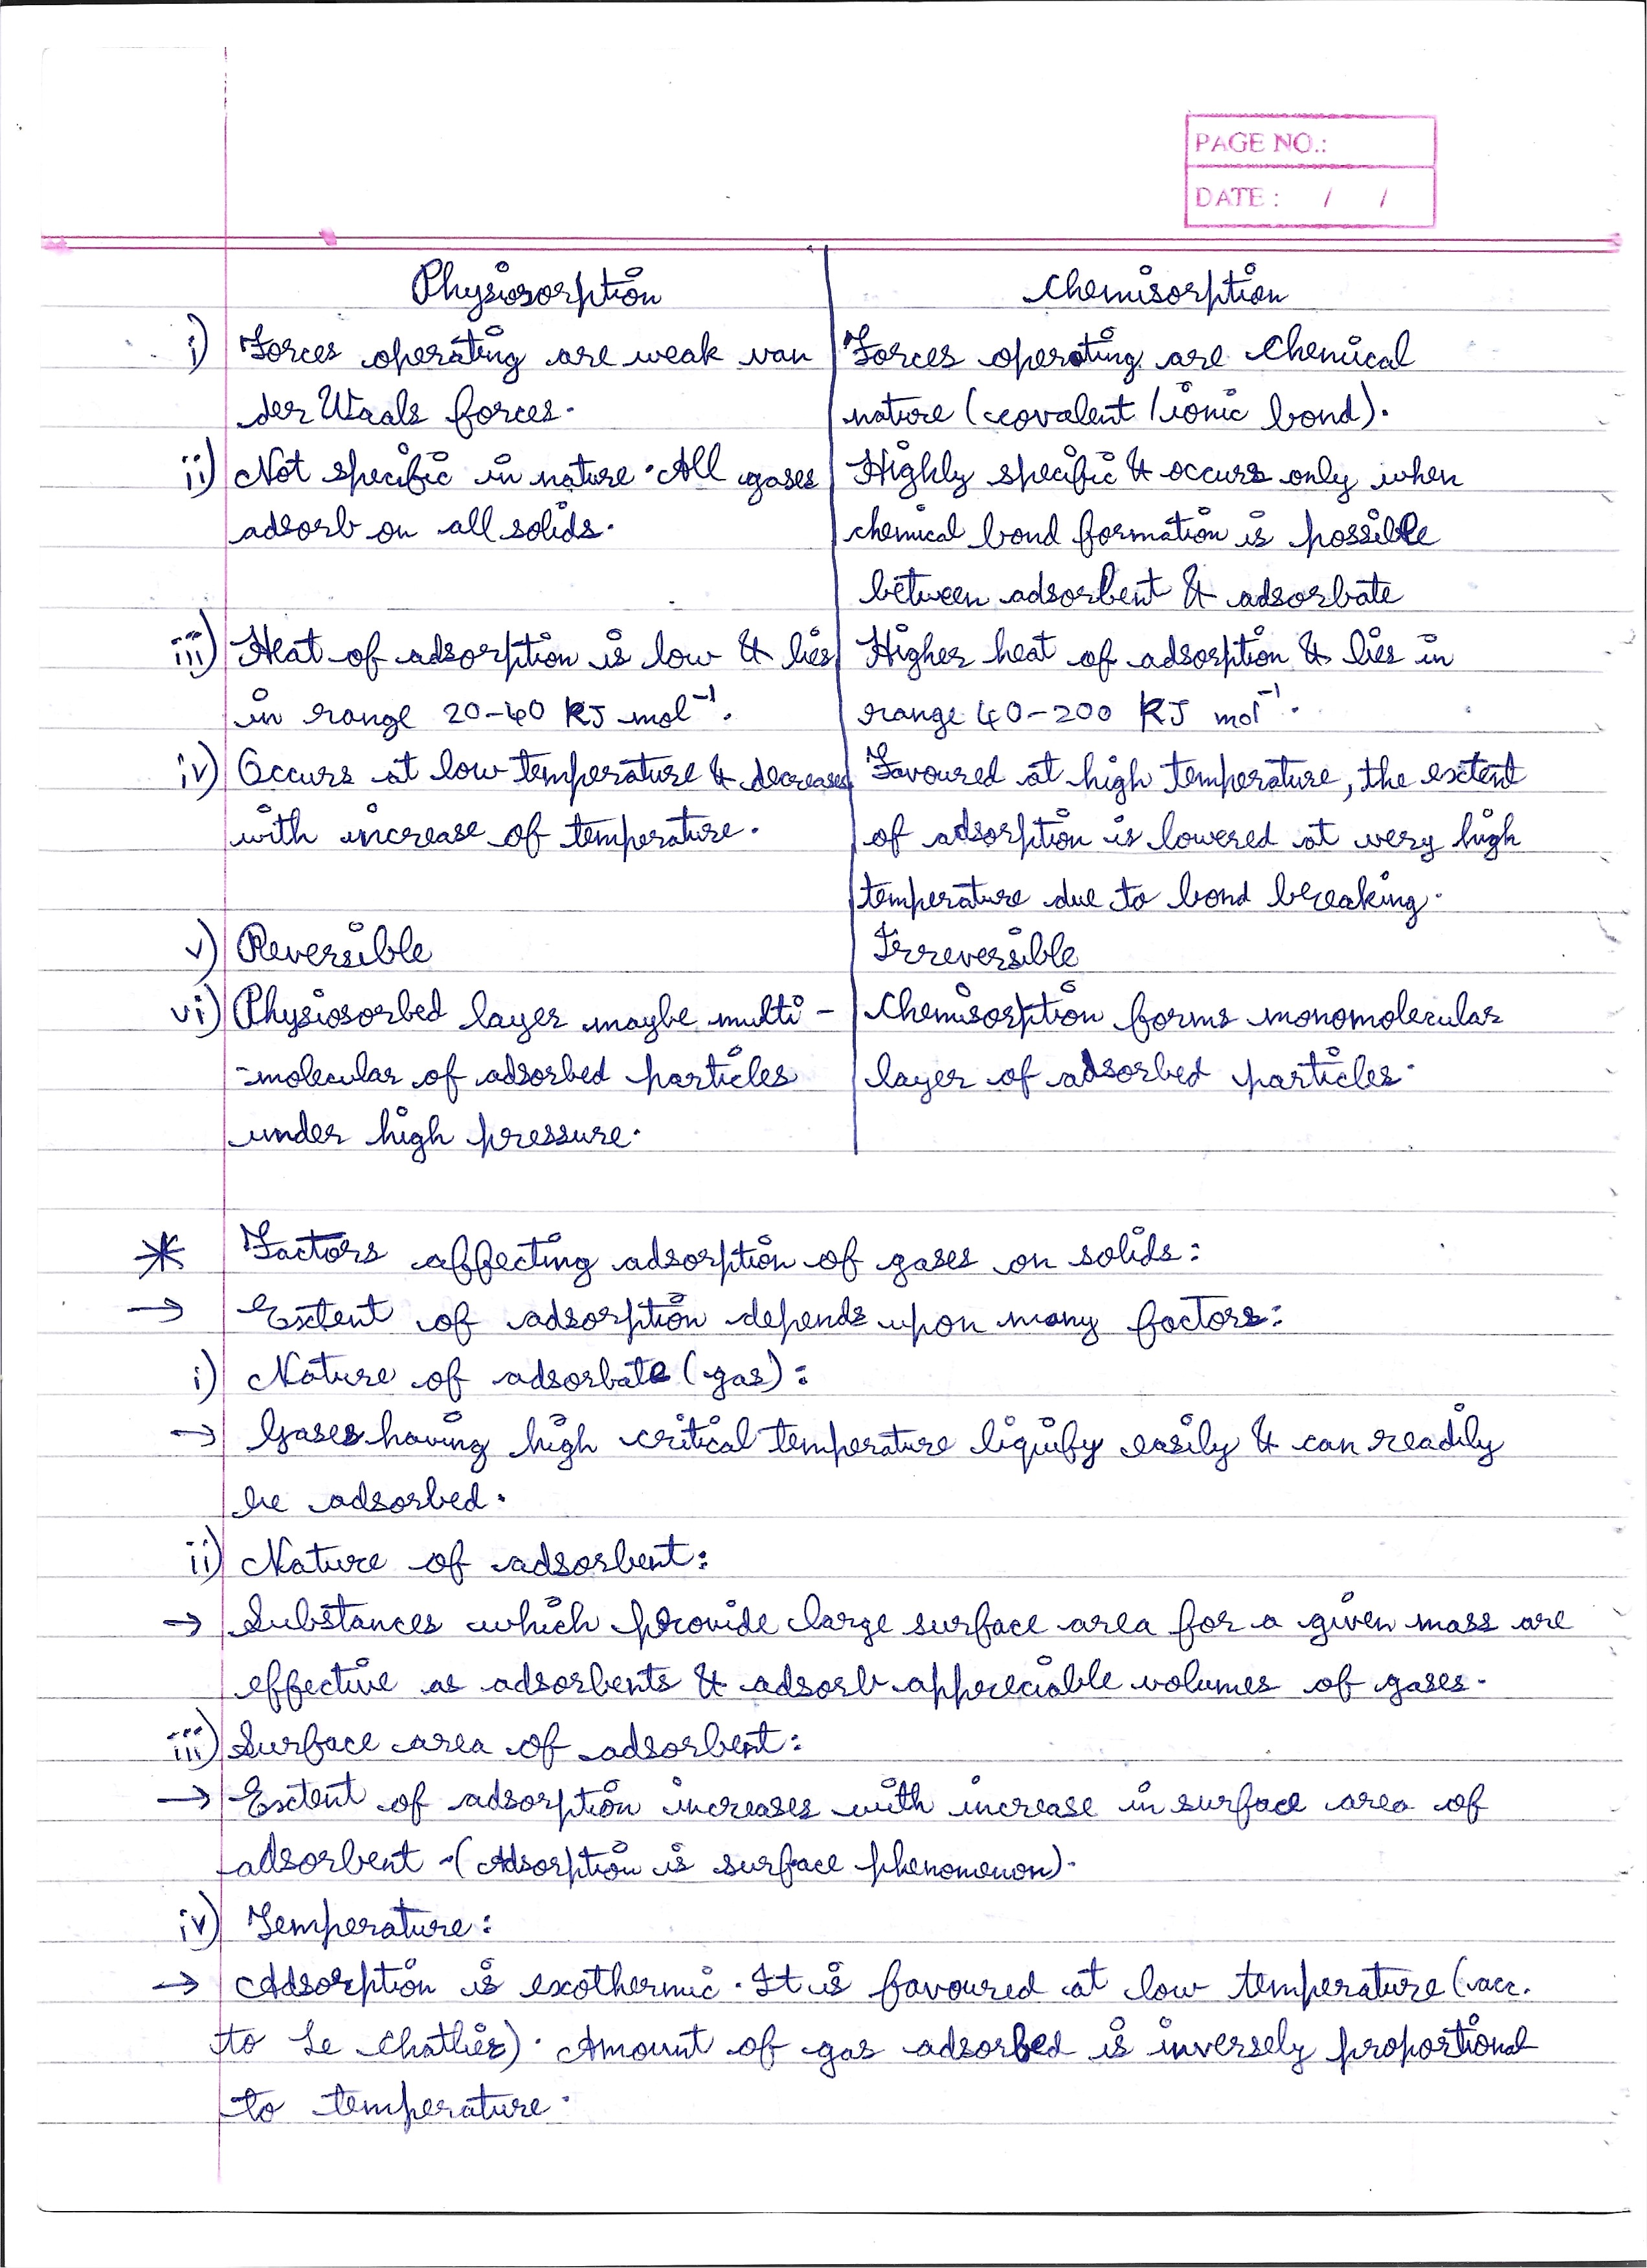 PAGE NO.:
DATE : / /
Physiosorption Chemisorption
i) Forces operating are weak van Forces operating are Chemical
der Waals forces. nature (covalent / ionic bond).
ii) Not specific in nature. All gases Highly specific & occurs only when
adsorb on all solids. chemical bond formation is possible
between adsorbent & adsorbate
iii) Heat of adsorption is low & lies Higher heat of adsorption & lies in
in range 20-40 KJ mol⁻¹. range 40-200 KJ mol⁻¹.
iv) Occurs at low temperature & decreases Favoured at high temperature, the extent
with increase of temperature. of adsorption is lowered at very high
temperature due to bond breaking.
v) Reversible Irreversible
vi) Physiosorbed layer maybe multi - Chemisorption forms monomolecular
-molecular of adsorbed particles layer of adsorbed particles.
under high pressure.
* Factors affecting adsorption of gases on solids:
→ Extent of adsorption depends upon many factors:
i) Nature of adsorbate (gas):
→ Gases having high critical temperature liquify easily & can readily
be adsorbed.
ii) Nature of adsorbent:
→ Substances which provide large surface area for a given mass are
effective as adsorbents & adsorb appreciable volumes of gases.
iii) Surface area of adsorbent:
→ Extent of adsorption increases with increase in surface area of
adsorbent. (Adsorption is surface phenomenon).
iv) Temperature:
→ Adsorption is exothermic. It is favoured at low temperature (acc.
to Le Chatlier). Amount of gas adsorbed is inversely proportional
to temperature.